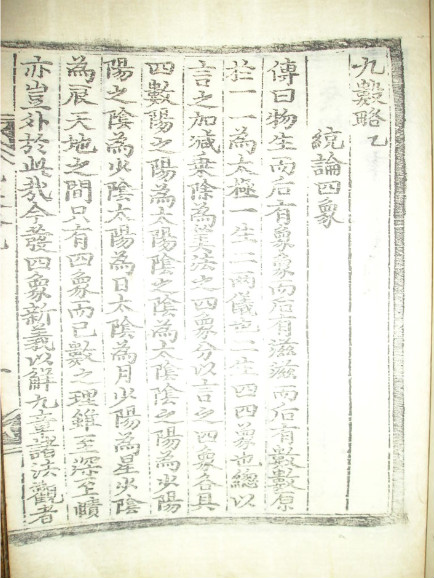 九數略乙
統論四象
傳曰物生而后有象象而后有滋滋而后有數數原
扵一一為太極一生二兩儀也二生四四象也總以
言之加減乗除為筭法之四象分以言之四象各具
四數陽之陽為太陽陰之陰為太陰陰之陽為少陽
陽之陰為少陰太陽為日太陰為月少陽為星少陰
為辰天地之間只有四象而已數之理雖至深至賾
亦豈外於此哉今發四象新義以解九章諸法觀者